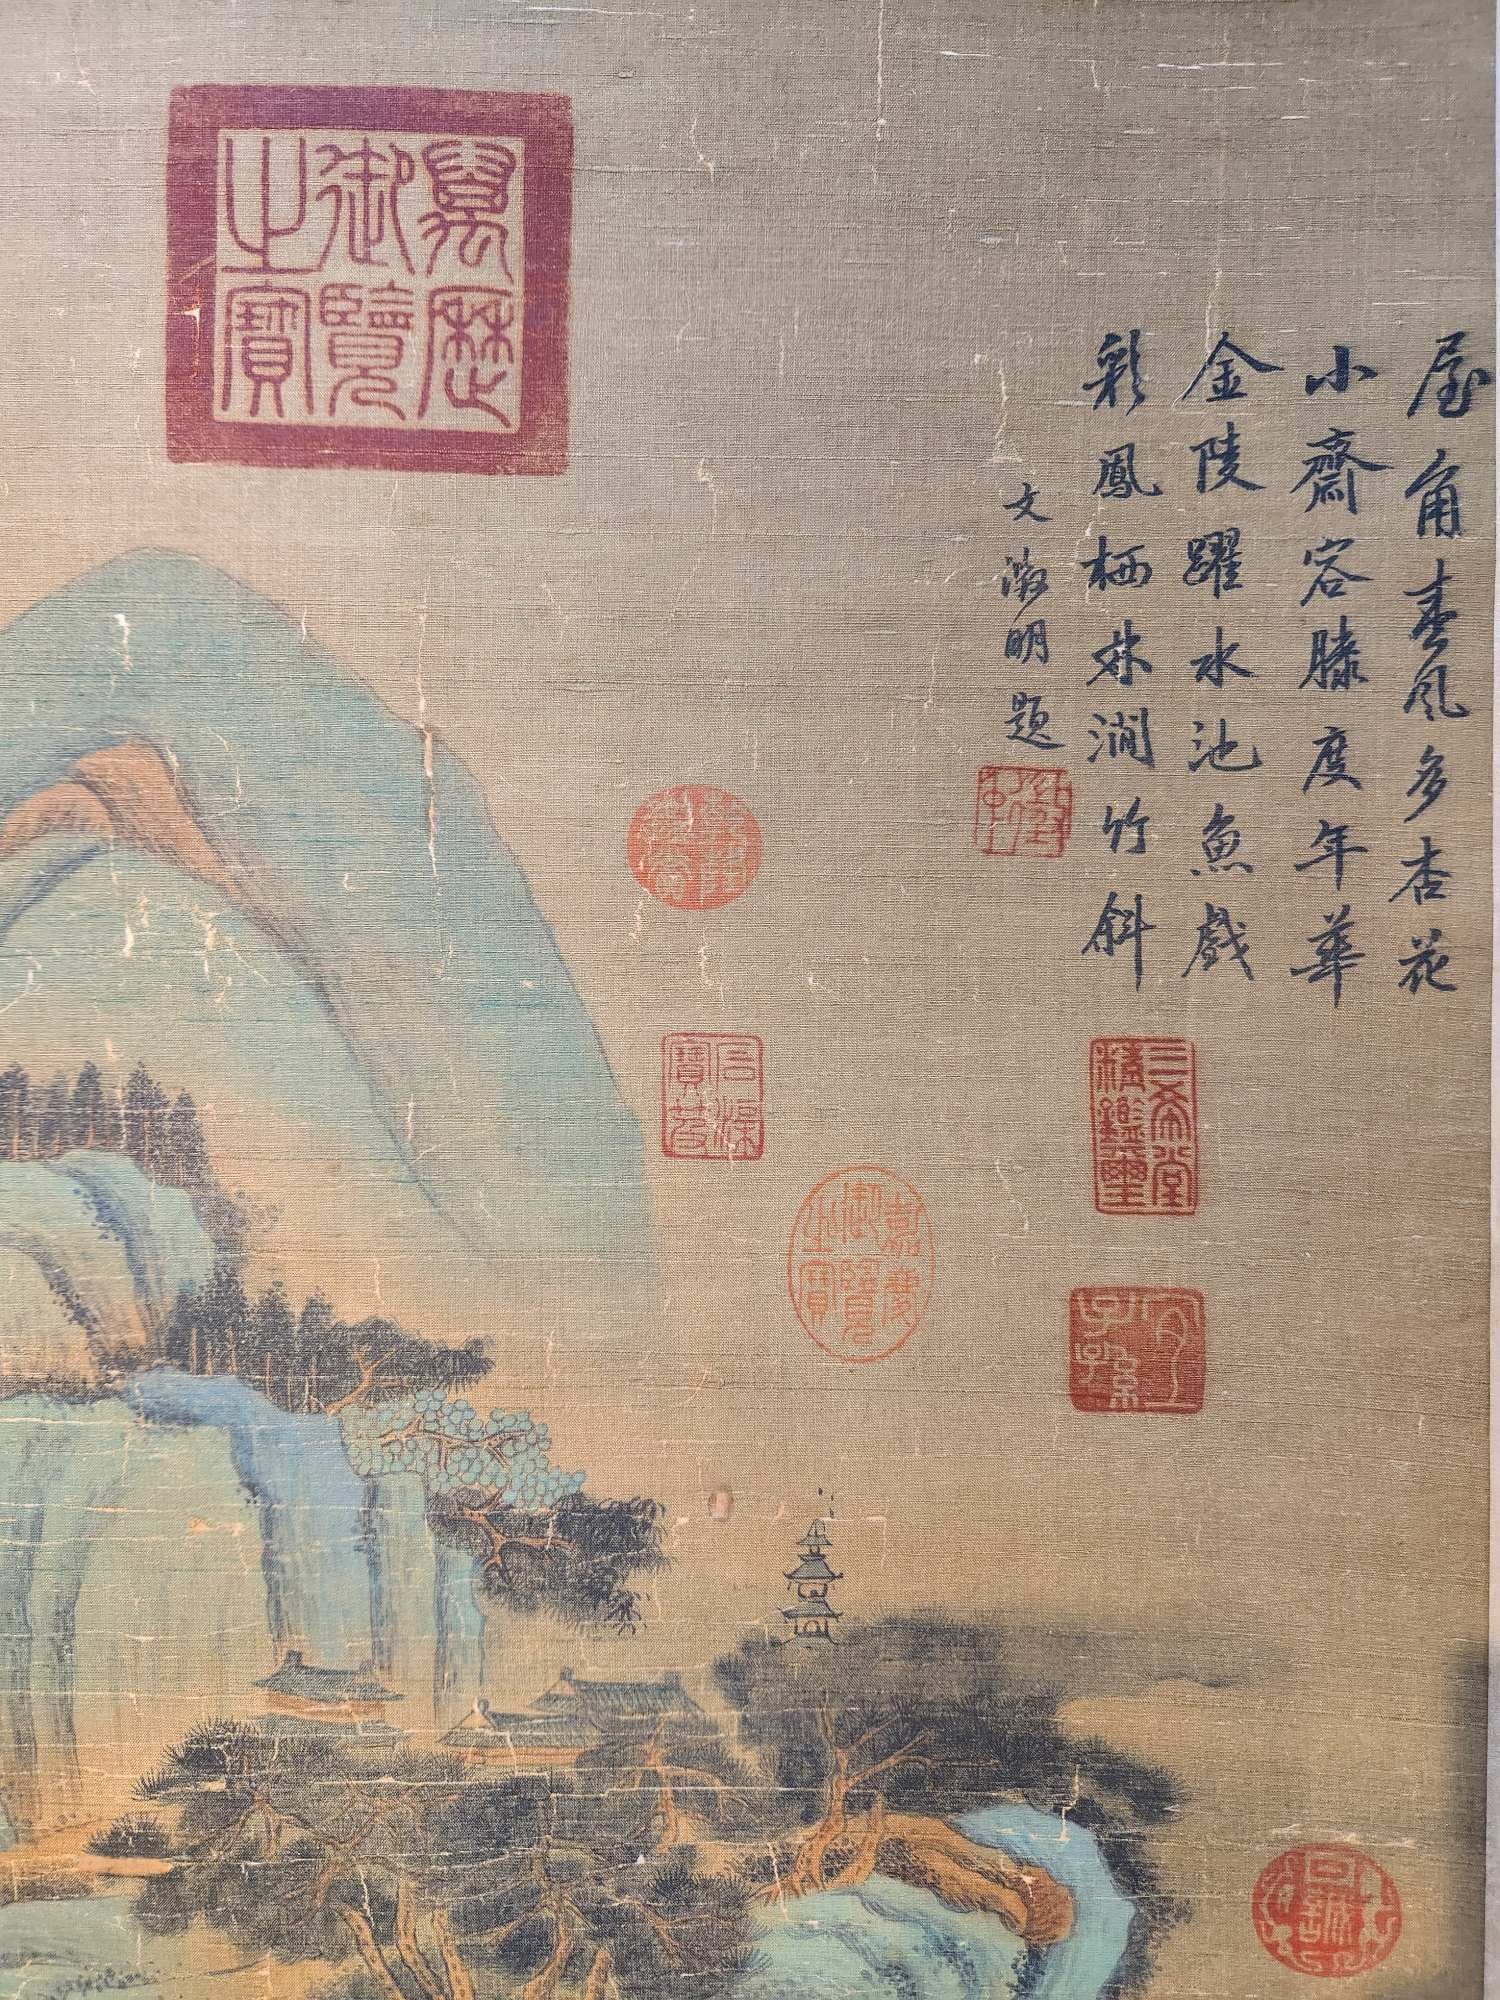 屋角春风多杏花
小齋容膝度年華
金陵躍水池魚戲
彩鳳栖林澗竹斜
文徵明題
萬歷
御覽
之寶
嘉慶
御覽
之寶
三希堂
精鑑璽
宜
子孫